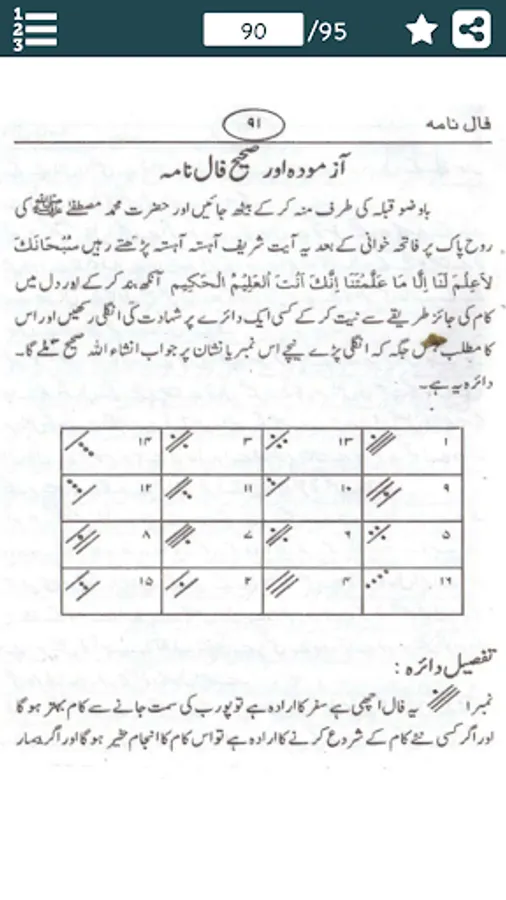 90 /95
فال نامہ ۹۱
آزمودہ اور صحیح فال نامہ
باوضو قبلہ کی طرف منہ کر کے بیٹھ جائیں اور حضرت محمد مصطفےٰ ﷺ کی
روح پاک پر فاتحہ خوانی کے بعد یہ آیت شریف آہستہ آہستہ پڑھتے رہیں سُبْحَانَكَ
لَاعِلْمَ لَنَا اِلَّا مَا عَلَّمْتَنَا اِنَّكَ اَنْتَ الْعَلِيْمُ الْحَكِيْم آنکھ بند کر کے اور دل میں
کام کی جائز طریقے سے نیت کر کے کسی ایک دائرے پر شہادت کی انگلی رکھیں اور اس
کا مطلب جس جگہ کہ انگلی پڑے نیچے اس نمبر یا نشان پر جواب انشاء اللہ صحیح ملے گا۔
دائرہ یہ ہے۔
۱ ۱۳ ۳ ۱۴
۹ ۱۰ ۱۱ ۱۲
۵ ۹ ۷ ۸
۱۶ ۴ ۲ ۱۵
تفصیل دائرہ :
نمبر ۱ یہ فال اچھی ہے سفر کا ارادہ ہے تو پورب کی سمت جانے سے کام بہتر ہو گا
اور اگر کسی نئے کام کے شروع کرنے کا ارادہ ہے تو اس کام کا انجام خیر ہو گا اور اگر بیمار